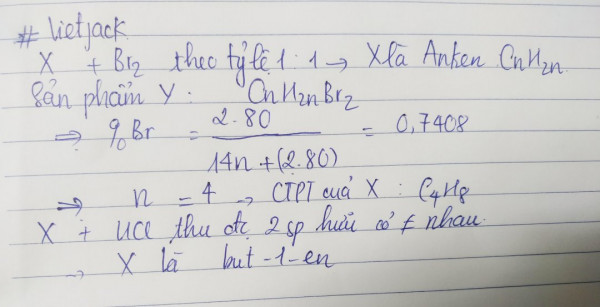 # Vietjack
X + Br2 theo tỷ lệ 1:1 → X là Anken CnH2n
Sản phẩm Y: CnH2nBr2
⇒ %Br = 2.80 / 14n+(2.80) = 0,7408
⇒ n = 4 → CTPT của X : C4H8
X + HCl thu đc 2 sp hữu cơ ≠ nhau.
→ X là but-1-en